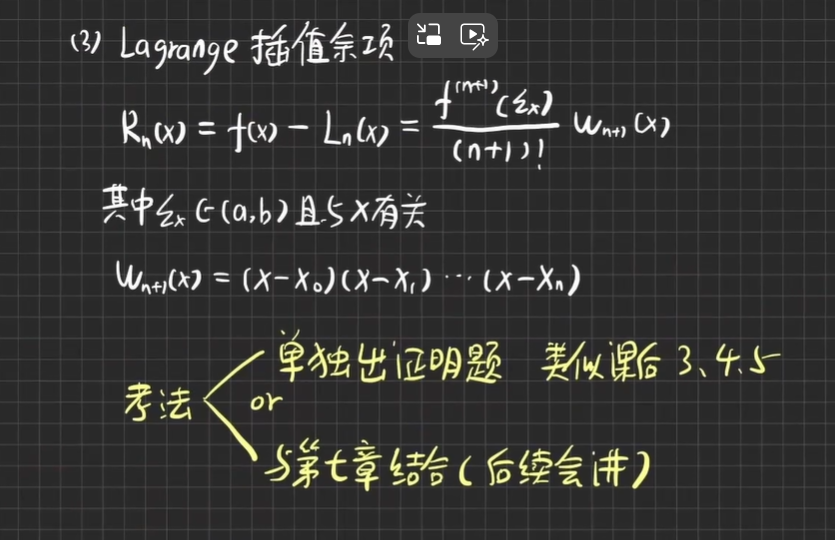 (3) Lagrange 插值余项
Rₙ(x) = f(x) − Lₙ(x) = f⁽ⁿ⁺¹⁾(ξₓ) / (n+1)! Wₙ₊₁(x)
其中ξₓ∈(a,b)且与x有关
Wₙ₊₁(x) = (x−x₀)(x−x₁)⋯(x−xₙ)
单独出证明题 类似课后 3、4.5
考法 or
与第七章结合(后续会讲)